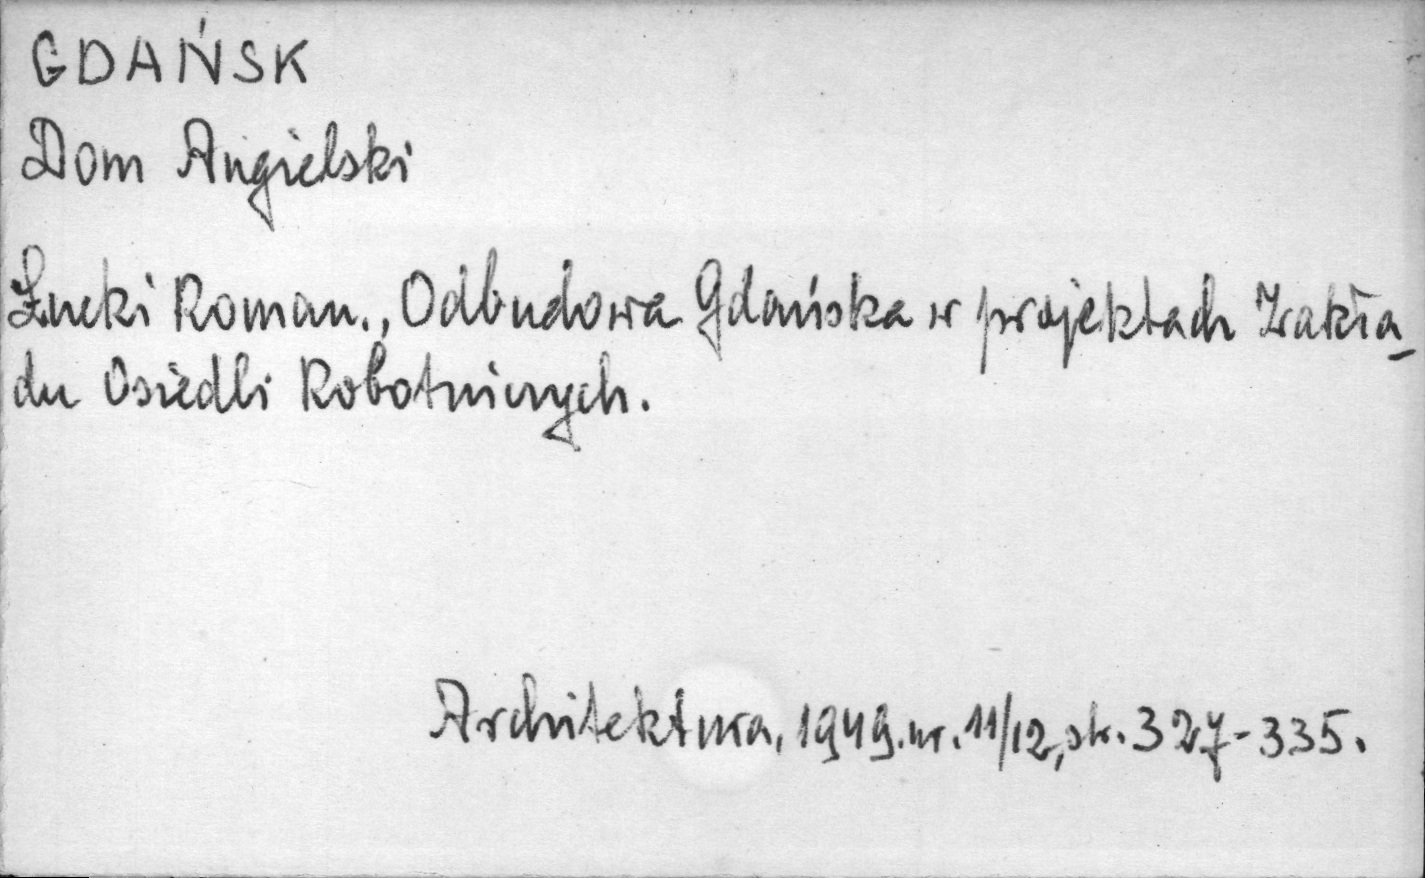 GDAŃSK
Dom Angielski
Łucki Roman., Odbudowa Gdańska w projektach Zakła-
du Osiedli Robotniczych.
Architektura, 1949. nr. 11/12, str. 327-335.